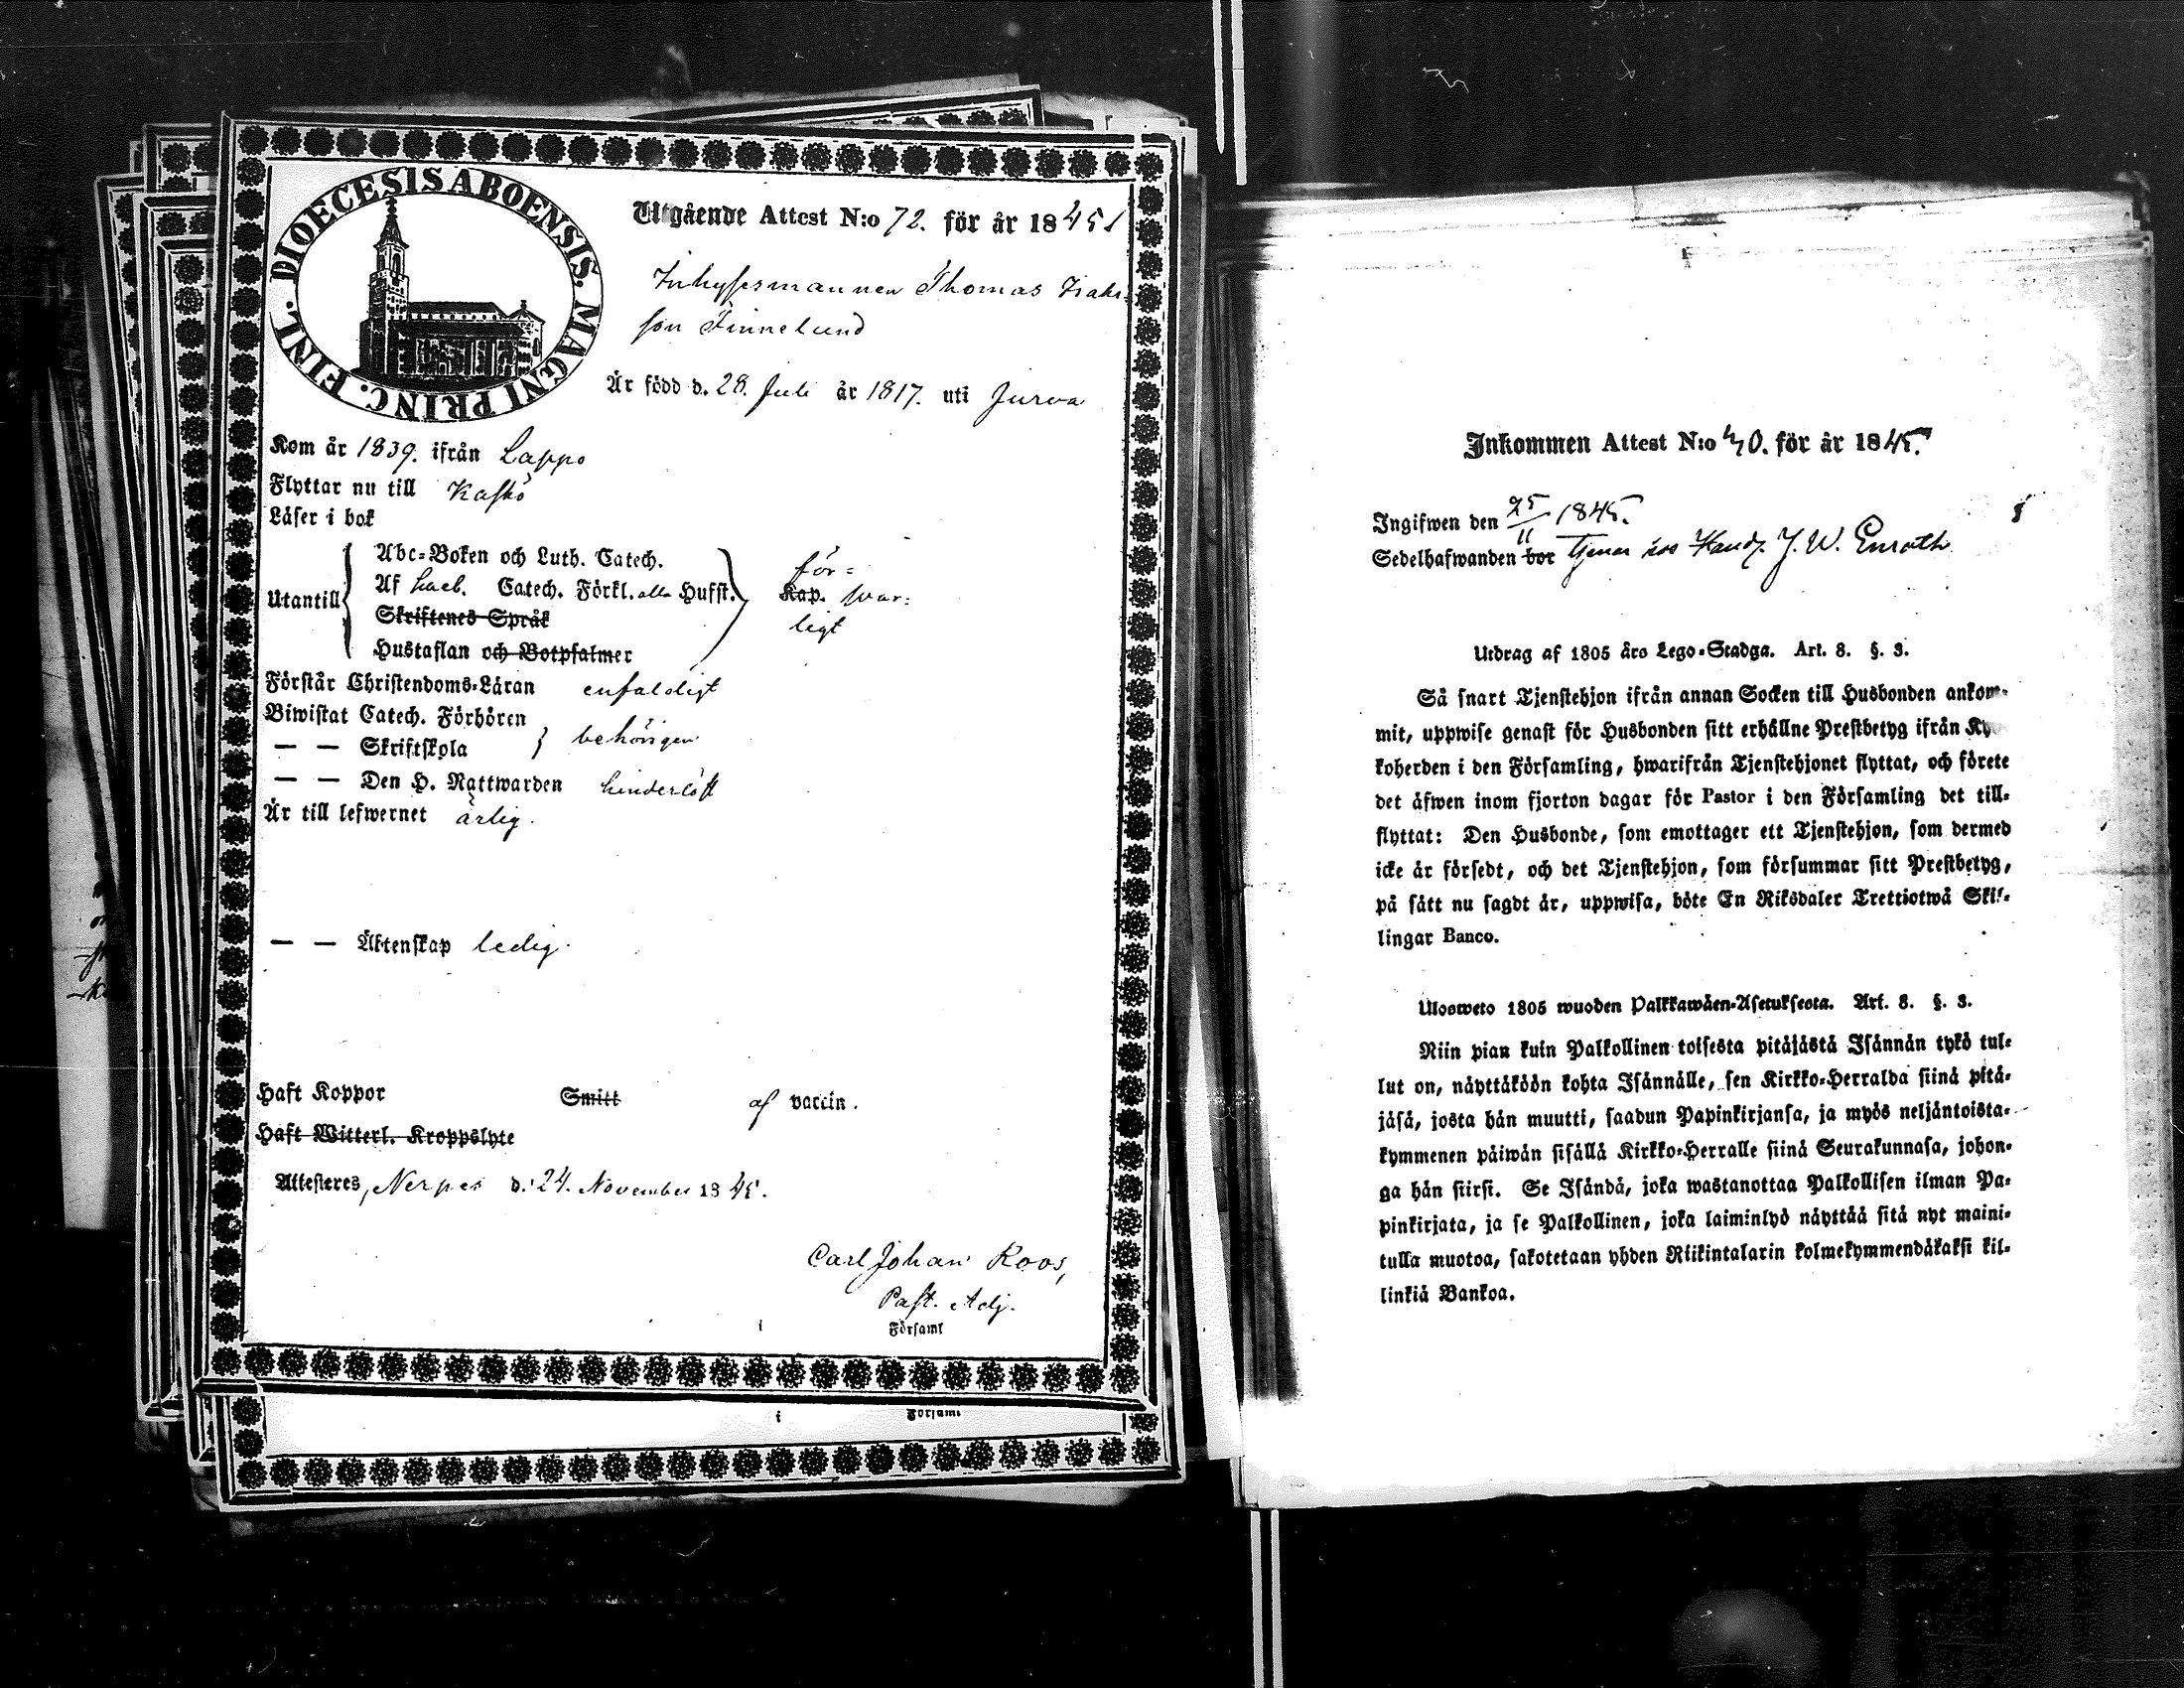 DIOECESIS ABOENSIS. MAGNI PRINC. FINL.
Utgående Attest N:o 72. för år 1845
Inhysesmannen Thomas Isaks-
son Finnelund
Är född d. 28. Juli år 1817. uti Jurva
Kom år 1839. ifrån Lappo
Flyttar nu till Kaskö
Läser i bok
Utantill
Abc-Boken och Luth. Catech.
Af Catech. Förkl. alla Hufst.
Skriftenes Språk
Hustaflan och Botpsalmer
för-
Kap. swar-
ligt
Förstår Christendoms-Läran enfaldigt
Biwistat Catech. Förhören
— — Skriftskola behörigen
— — Den H. Nattwarden hinderlöst
Är till lefwernet ärlig.
— — Äktenskap ledig.
Haft Koppor Smitt af vaccin.
Haft Witterl. Kroppslyte
Attesteres, Nerpes d. 24. November 1845.
Carl Johan Roos,
Past. Adj.
i Församl
i Församl
Inkommen Attest N:o 40. för år 1845.
Ingifwen den 25/11 1845.
Sedelhafwanden bor tjenar hos Handl. J. W. Enroth
Utdrag af 1805 års Lego-Stadga. Art. 8. §. 3.
Så snart Tjenstehjon ifrån annan Socken till Husbonden ankom-
mit, uppwise genast för Husbonden sitt erhållne Prestbetyg ifrån Ky
koherden i den Församling, hwarifrån Tjenstehjonet flyttat, och förete
det äfwen inom fjorton dagar för Pastor i den Församling det till-
flyttat: Den Husbonde, som emottager ett Tjenstehjon, som dermed
icke är försedt, och det Tjenstehjon, som försummar sitt Prestbetyg,
på sätt nu sagdt är, uppwisa, böte En Riksdaler Trettiotwå Skil-
lingar Banco.
Ulosweto 1805 wuoden Palkkawäen-Asetuksesta. Art. 8. §. 3.
Niin pian kuin Palkollinen toisesta pitäjästä Isännän tykö tul-
lut on, näyttäköön kohta Isännälle, sen Kirkko-Herralda siinä pitä-
jäsä, josta hän muutti, saadun Papinkirjansa, ja myös neljäntoista-
kymmenen päiwän sisällä Kirkko-Herralle siinä Seurakunnasa, johon-
ga hän siirsi. Se Isändä, joka wastanottaa Palkollisen ilman Pa-
pinkirjata, ja se Palkollinen, joka laiminlyö näyttää sitä nyt maini-
tulla muotoa, sakotetaan yhden Riikintalarin kolmekymmendäkaksi kil-
linkiä Bankoa.